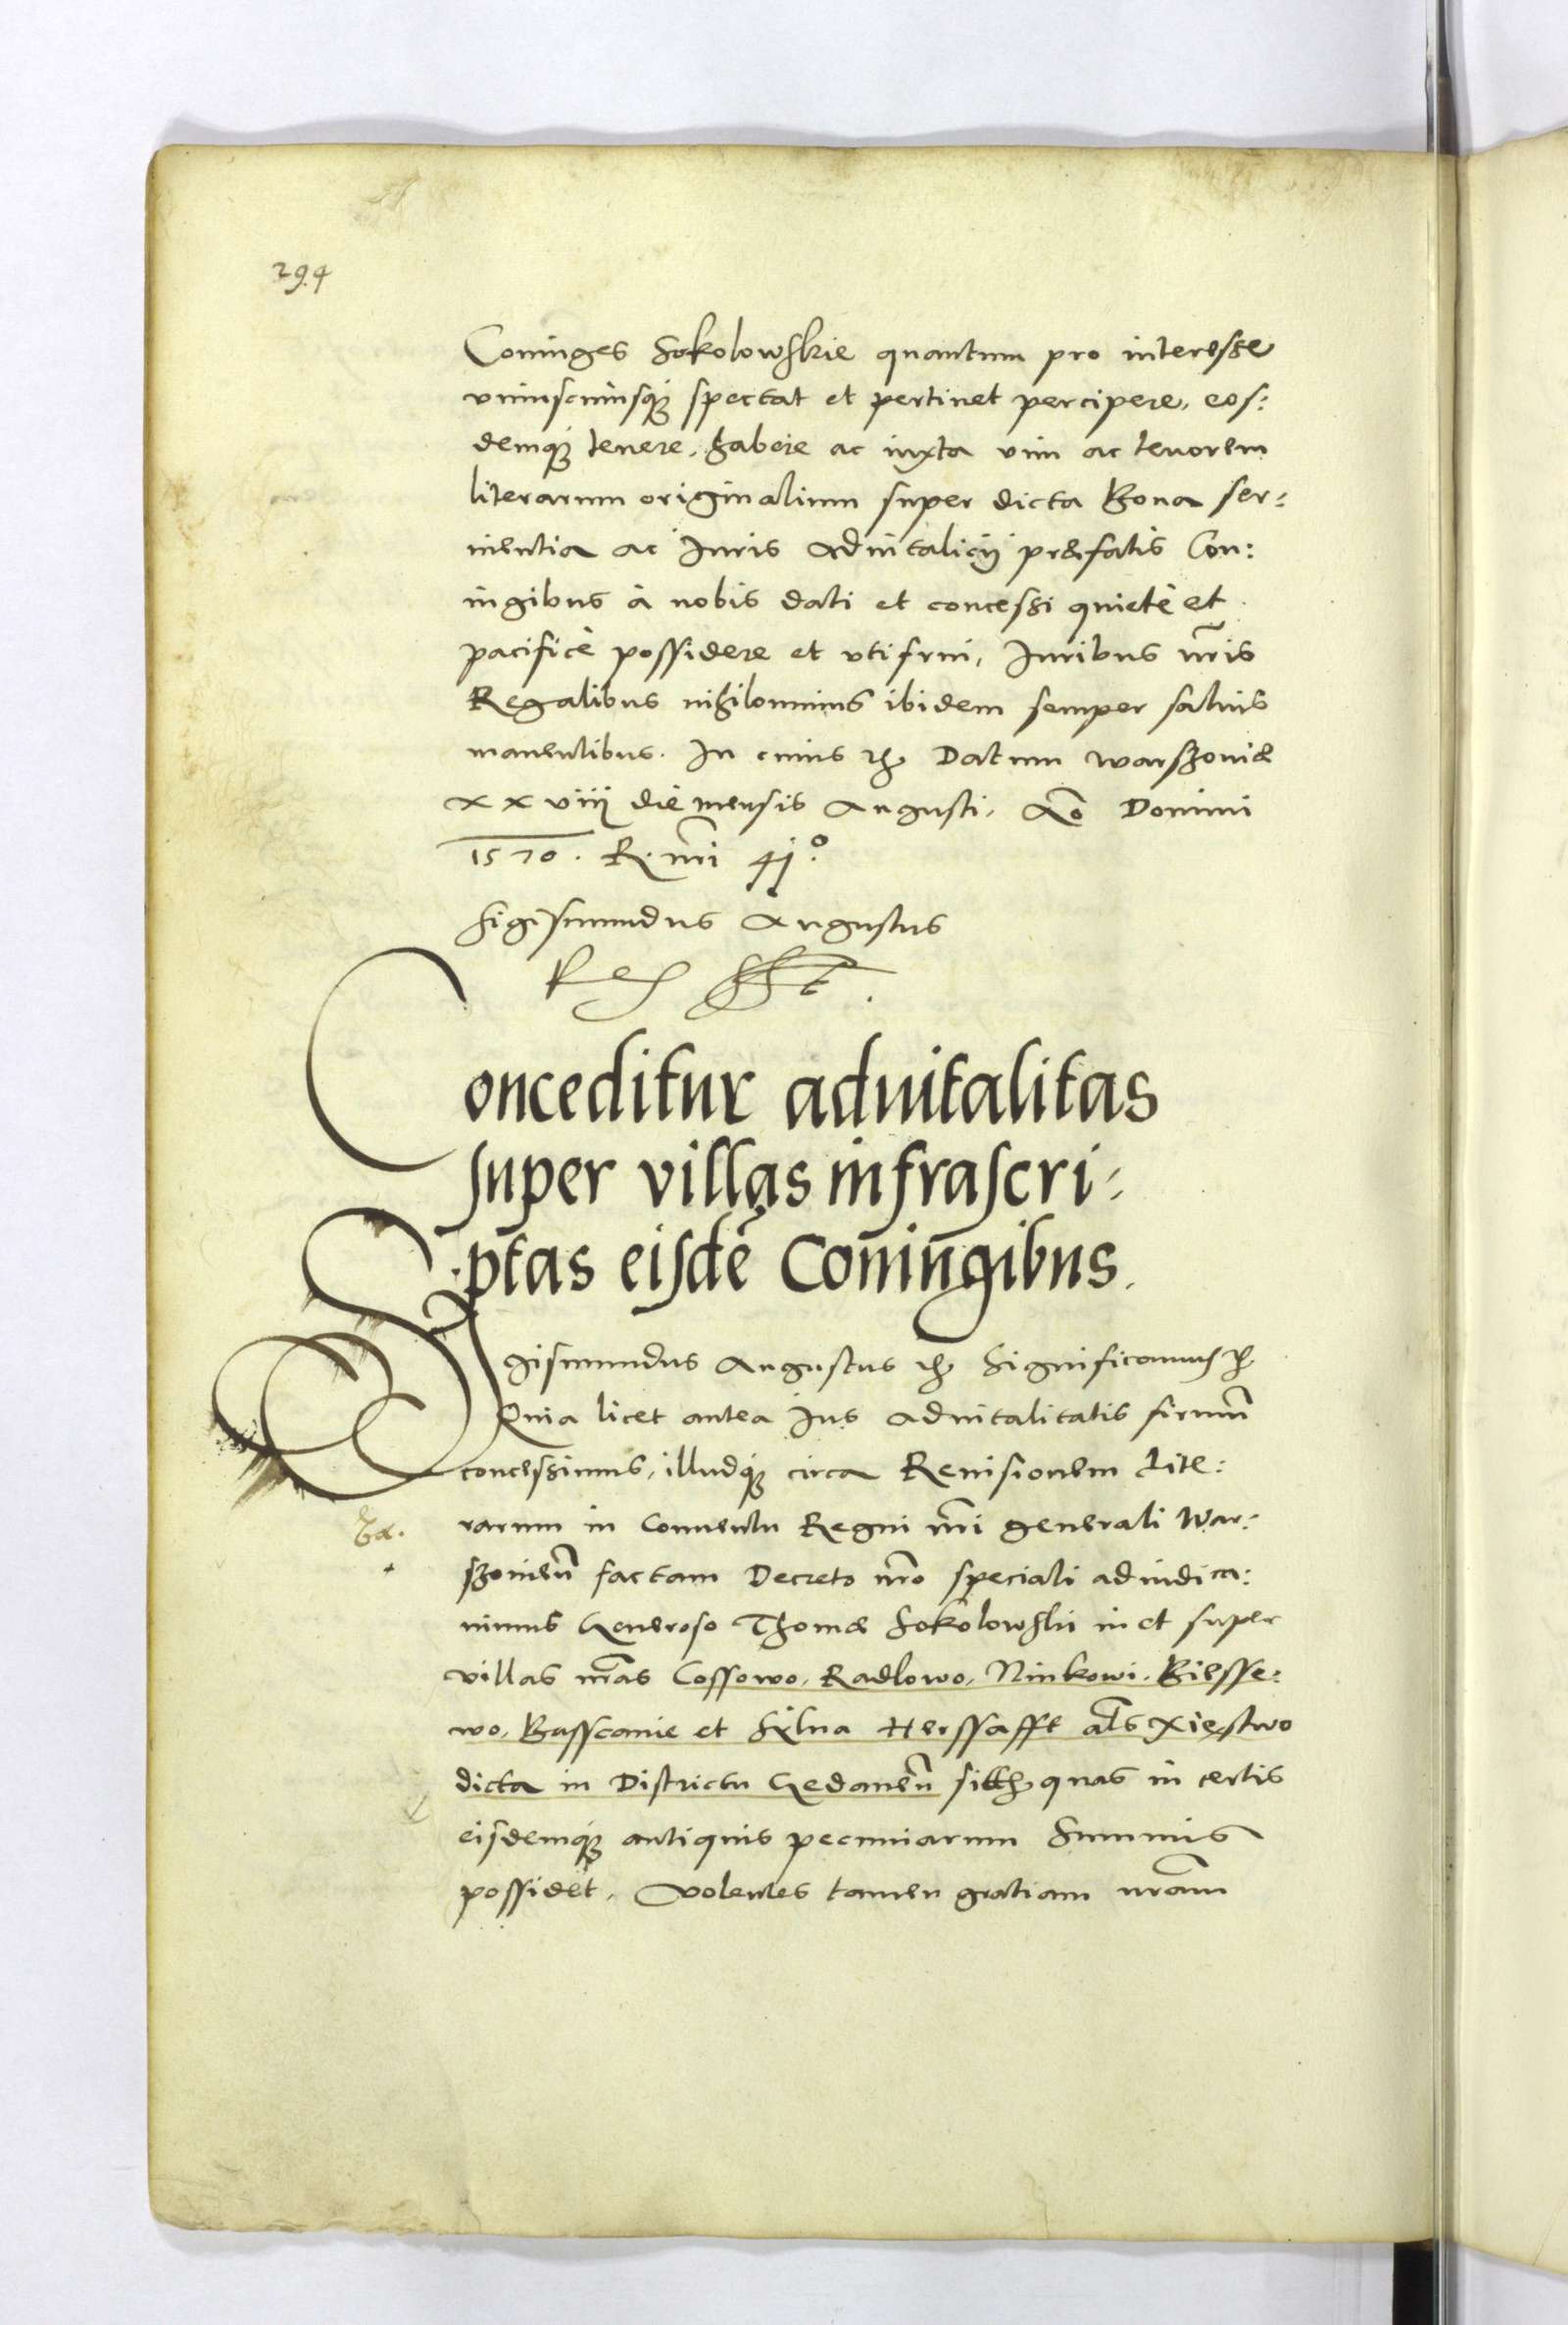 294
Coniuges Sokolowskie quantum pro interesse
vniuscuiusq; spectat et pertinet percipere, eos:
demq; tenere, habere ac iuxta vim ac tenorem
literarum originalium super dicta Bona ser:
uientia ac Iuris aduitalicij præfatis Con:
iugibus à nobis dati et concessi quietè et
pacificè possidere et vtifrui, Iuribus nr̃is
Regalibus nihilominus ibidem semper saluis
manentibus. In cuius rḥ Datum Warszouiæ
xxviij die mensis Augusti, Aō Domini
1570. R. nr̃i 41º.
Sigismundus Augustus
Rex sst.
Conceditur aduitalitas
super villas infrascri:
ptas eisdē Coniugibus.
Sigismundus Augustus rḥ Significamus rḥ
Quia licet antea Ius aduitalitatis firmum̃
concessimus, illudq; circa Reuisionem Lite:
rarum in Conuentu Regni nr̃i generali War:
szouien̄ factam Decreto nr̃o speciali adiudica:
uimus Generoso Thomæ Sokolowski in et super
villas nr̃as Cossowo, Radlowo, Ninkowi, Bilsse:
wo, Busscanie et Sylua Herssafft al̃s Xięstwo
dicta in Districtu Gedanen̄ sitḥ quas in certis
eisdemq; antiquis pecuniarum Summis
possidet. Volentes tamen gratiam nr̃am